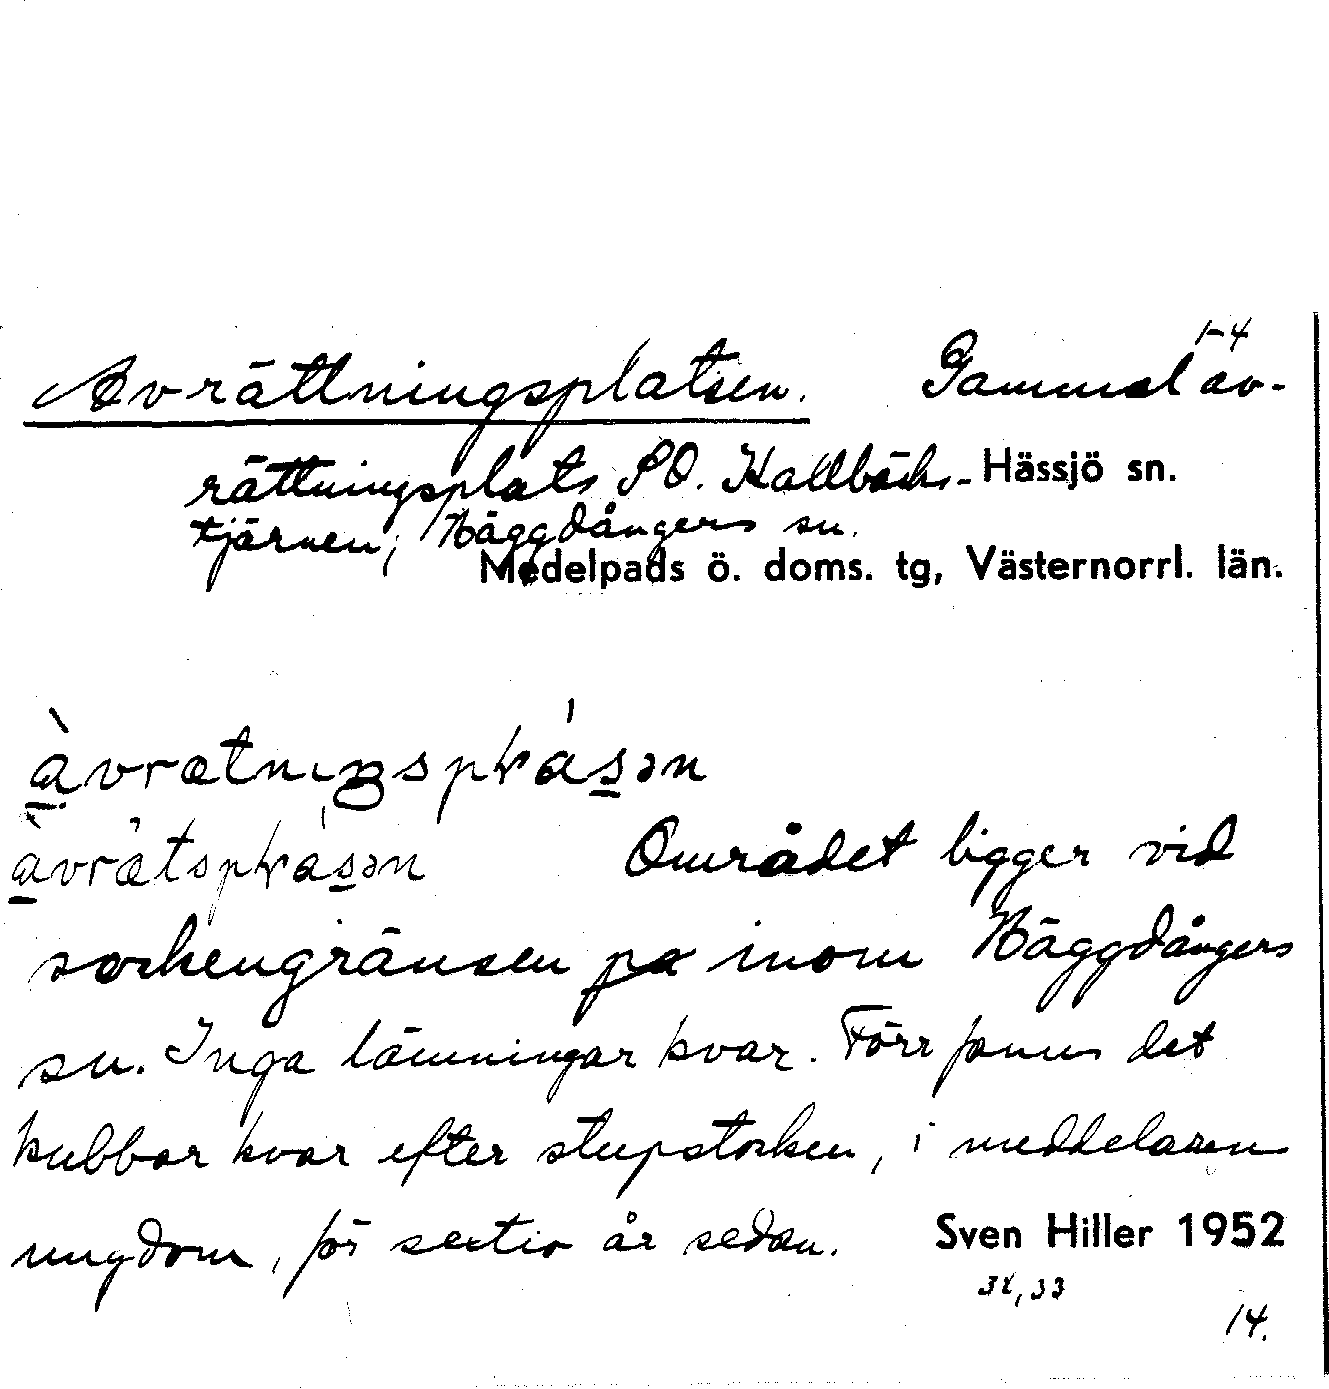 1-4
Avrättningsplatsen. Gammal av-
rättningsplats SO. Kallbäcks- Hässjö sn.
tjärnen, Häggdångers sn.
Medelpads ö. doms. tg, Västernorrl. län.
Området ligger vid
sockengränsen på inom Häggdångers
sn. Inga lämningar kvar. Förr fanns det
kubbar kvar efter stupstocken, i meddelaren
ungdom, för sextio år sedan. Sven Hiller 1952
14.